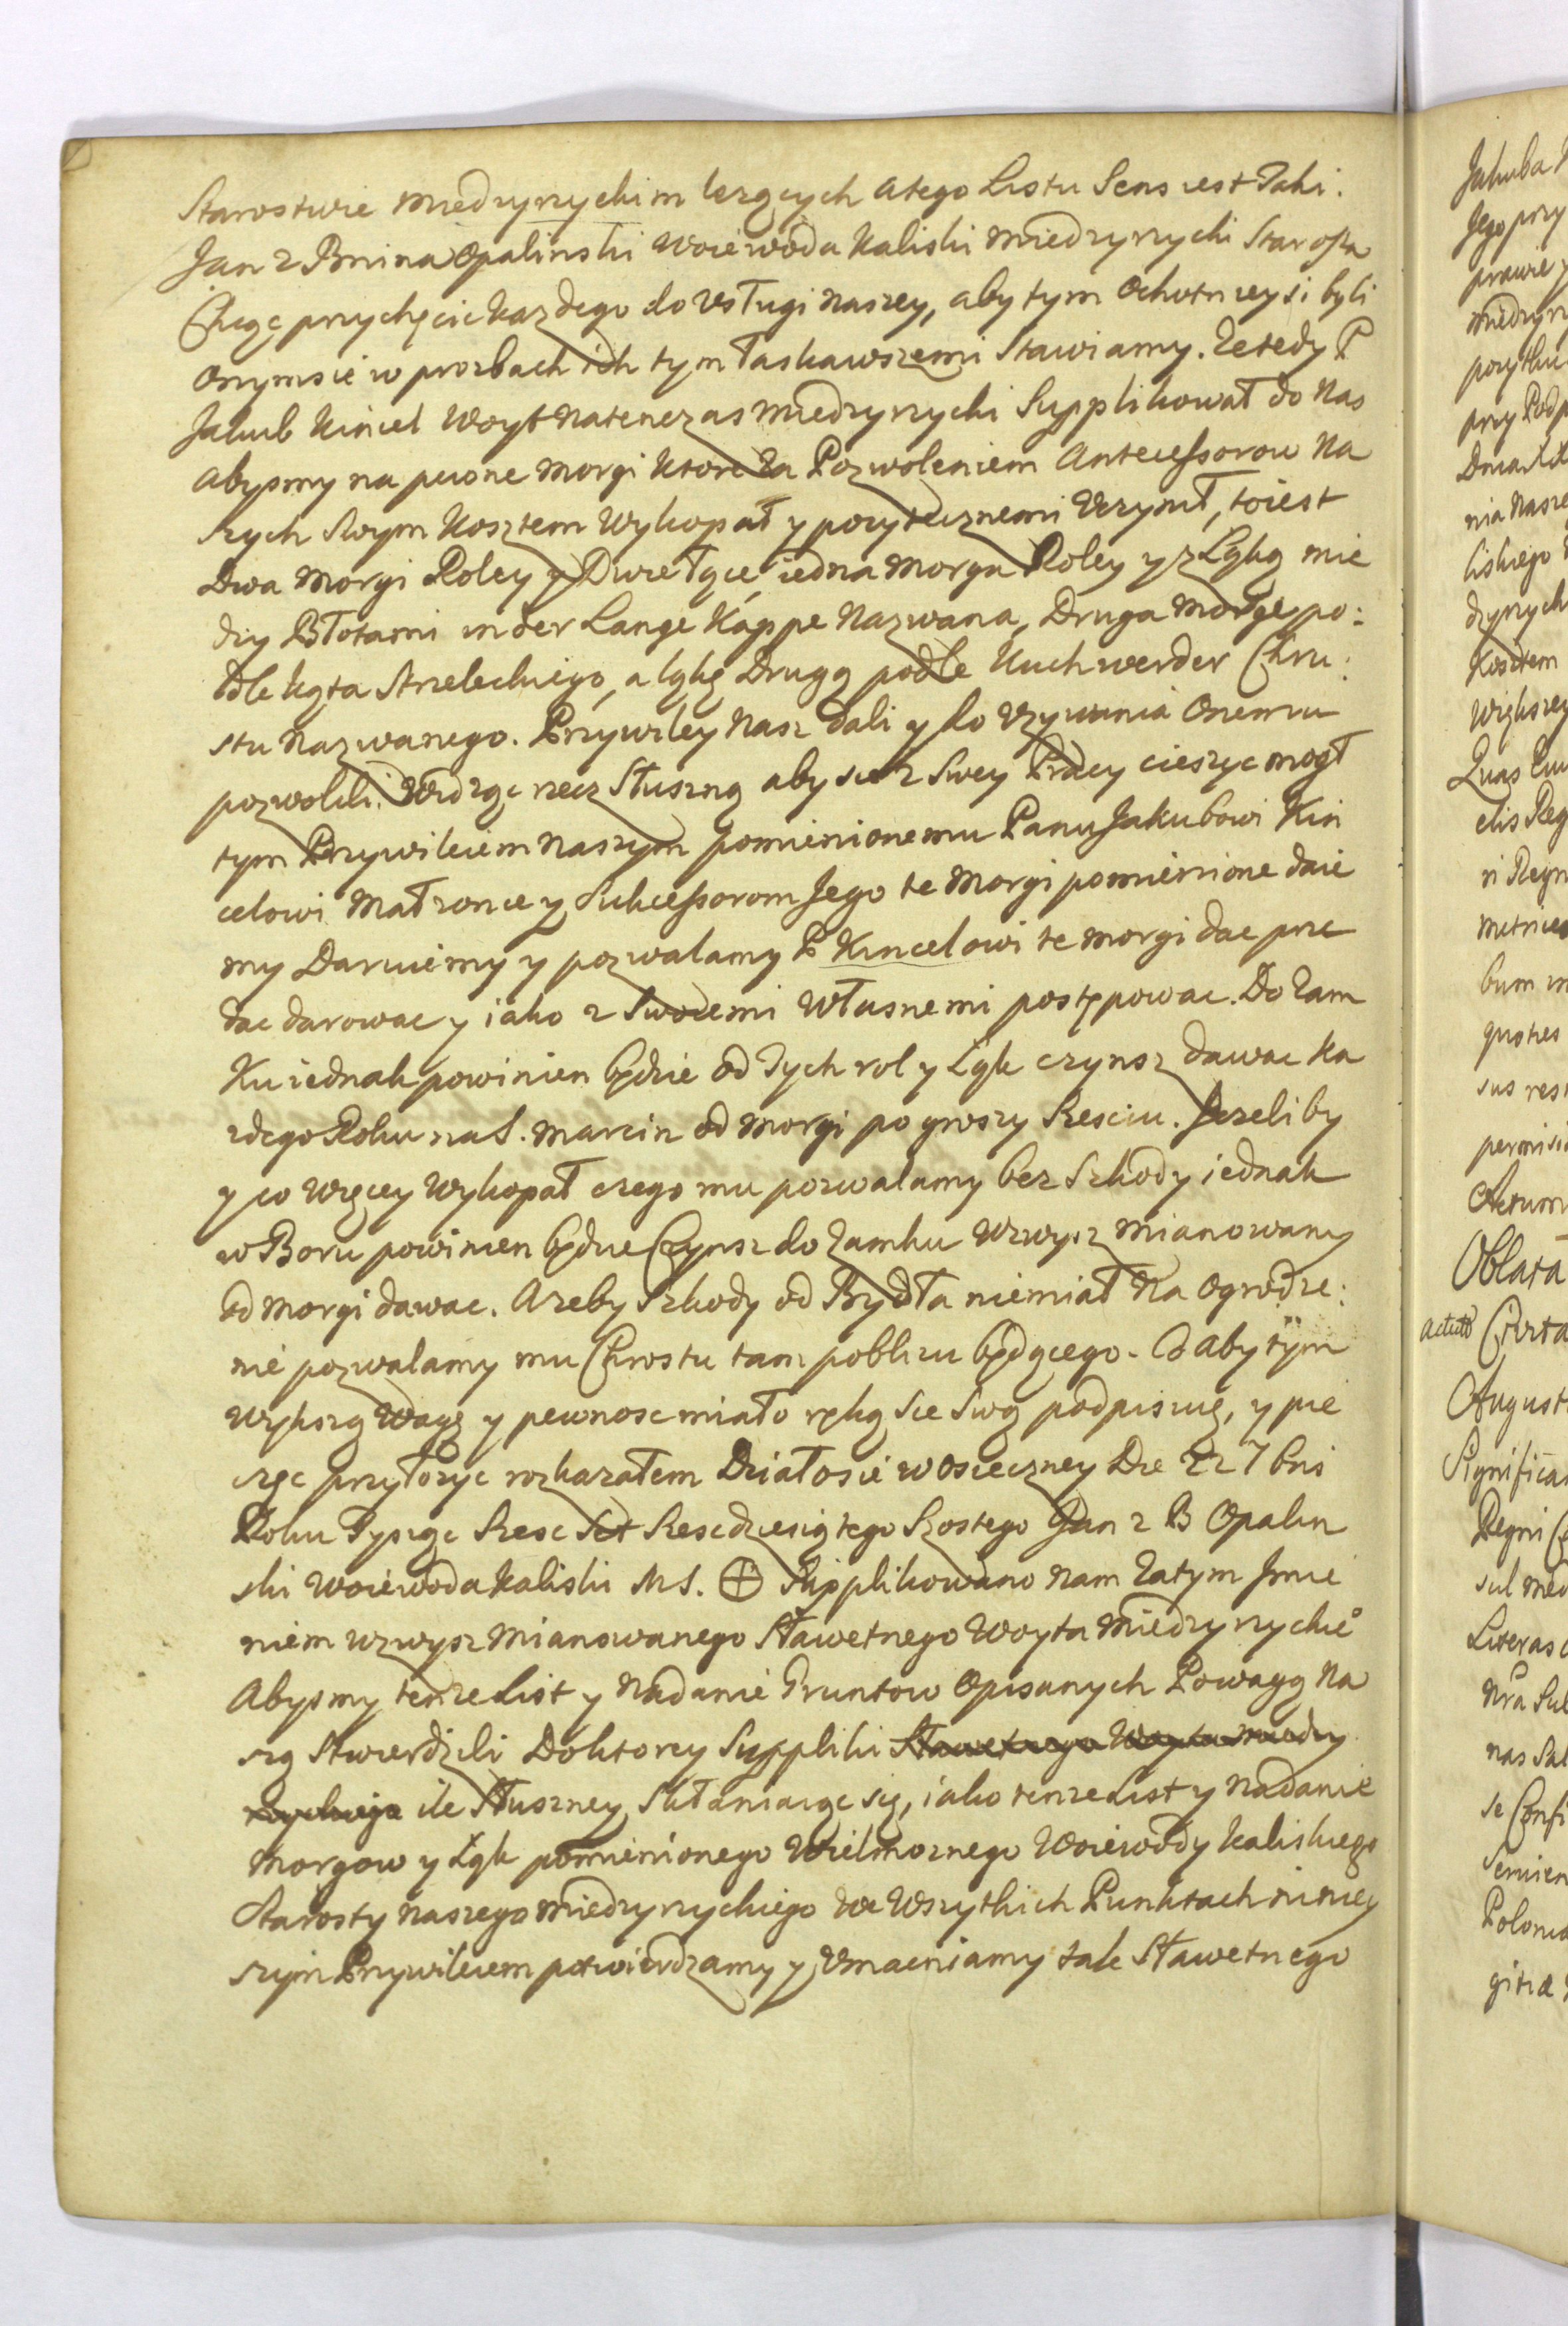 Starostwie Miedzyrychim lezących a tego Listu Sens iest Taki.
Jan z Bnina Opalinski Woiewoda Kaliski Miedzyrychi Starosta
Chcąc przychęcic kazdego do Usługi naszey, aby tym Ochotnieysi byli
Onymsie w prozbach ich tym łaskawszemi Stawiamy. Ze tedy P
Jakub Kincel Woyt natenczas Miedzyrzychi Supplikował do Nas
abysmy na pewne Morgi ktore za Pozwoleniem Antecessorow Na
szych Swym Kosztem Wykopał y pozytecznemi Uczynił, to iest
Dwa Morgi Roley y Dwie Łące, iedna Morga Roley y z Łąką mie
dzy Błotami in der Lange Kappe Nazwana, Druga Morge po:
dle kąta Strzeleckiego, a łąkę Drugą podle Kuchwerder Chru:
stu Nazwanego. Przywiley Nasz dali y do Uzywania Onemu
pozwolili. Widząc rzecz Słuszną aby sie z Swey Pracy cieszyc mogł
tym Przywileiem naszym pomienionemu Panu Jakubowi Kin
celowi Małzonce y Sukcessorom Jego te Morgi pomienione daie
my Daruiemy y pozwalamy P Kincelowi te morgi dac prze
dac darowac y iako z Swoiemi Własnemi postępowac. Do Zam
Ku iednak powinien będzie od Tych rol y Łąk czynsz dawac Ka
zdego Roku na S. Marcin od Morgi po groszy Szesciu. Jezeliby
y co Więcey Wykopał czego mu pozwalamy bez Szkody iednak
w Boru powinien będzie Czynsz do Zamku Wzwysz mianowany
od Morgi dawac. Azeby Szkody od Bydła niemiał Na Ogrodze:
nie pozwalamy mu Chrostu tam poblizu będącego. Co aby tym
Większą Wagę y pewnosc miało ręką Sie Swą podpisuię, y pie
częc przyłozyc rozkazałem Działosie w Osieczney Die 22 7bris
Roku Tysiąc Szesc Set Szescdziesiątego Szostego Jan z B Opalin
ski Woiewoda Kaliski M S. ⊕ Supplikowano nam Zatym Jmie
niem wzwysz Mianowanego Sławetnego Woyta Miedzyrychieº
Abysmy tenze List y Nadanie Gruntow Opisanych Powagą Na
szą Stwierdzili Do ktorey Suppliki Sławetnego Woyta Miedzy
rzychiego ile Słuszney Skłaniaiąc się, iako tenze List y Nadanie
Morgow y Łąk pomienionego Wielmoznego Woiewody Kaliskiego
Starosty naszego Miedzyrzychiego We Wszytkich Punktach niniey
szym Przywileiem potwierdzamy y Umacniamy tak Sławetnego